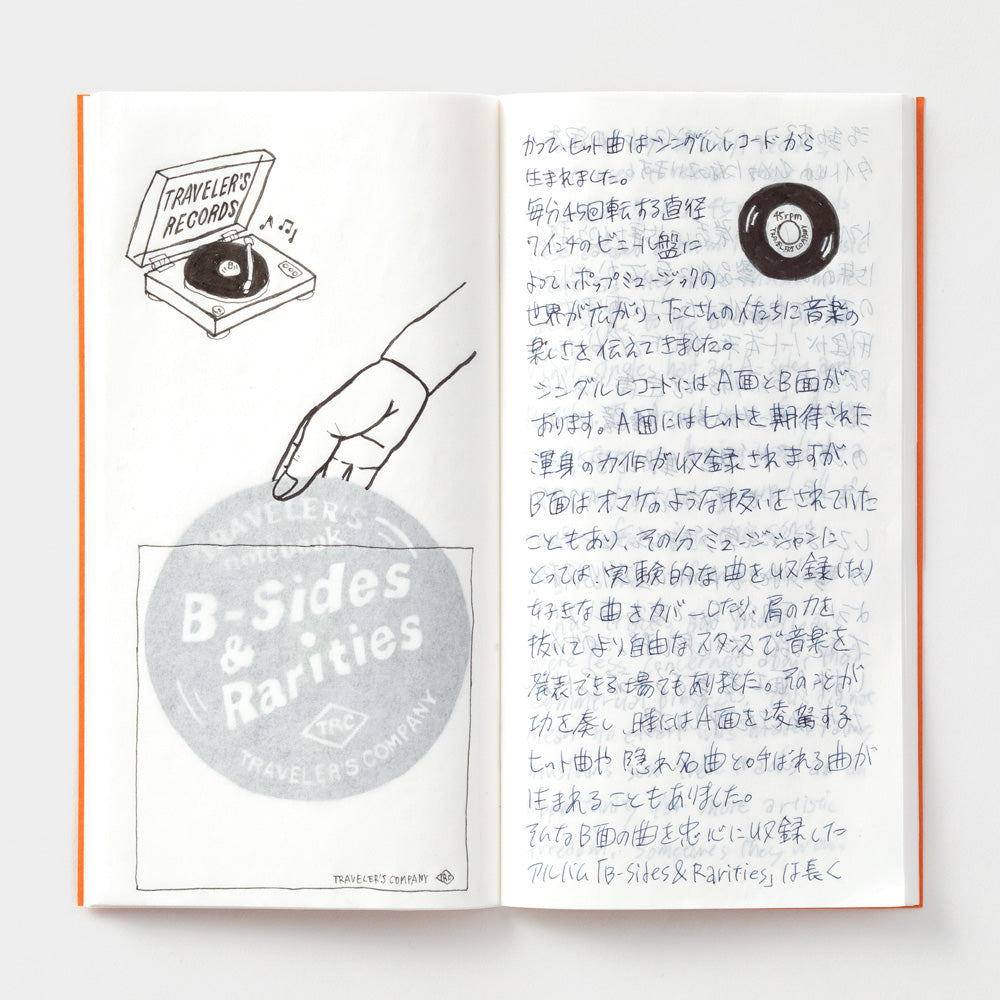 TRAVELER'S
RECORDS
B
TRAVELER'S
notebook
B-Sides
&
Rarities
TRC
TRAVELER'S COMPANY
TRAVELER'S COMPANY TRC
かつて、ヒット曲はシングルレコードから
生まれました。
毎分45回転する直径
7インチのビニール盤に
よって、ポップミュージックの
世界が広がり、たくさんの人たちに音楽の
楽しさを伝えてきました。
シングルレコードにはA面とB面が
あります。A面にはヒットを期待された
渾身の力作が収録されますが、
B面はオマケのような扱いをされていた
こともあり、その分ミュージシャンに
とっては、実験的な曲を収録したり
好きな曲をカバーしたり、肩の力を
抜いてより自由なスタンスで音楽を
発表できる場でもありました。そのことが
功を奏し、時にはA面を凌駕する
ヒット曲や隠れ名曲と呼ばれる曲が
生まれることもありました。
そんなB面の曲を中心に収録した
アルバム「B-Sides&Rarities」は長く
45rpm
TRAVELER'S COMPANY